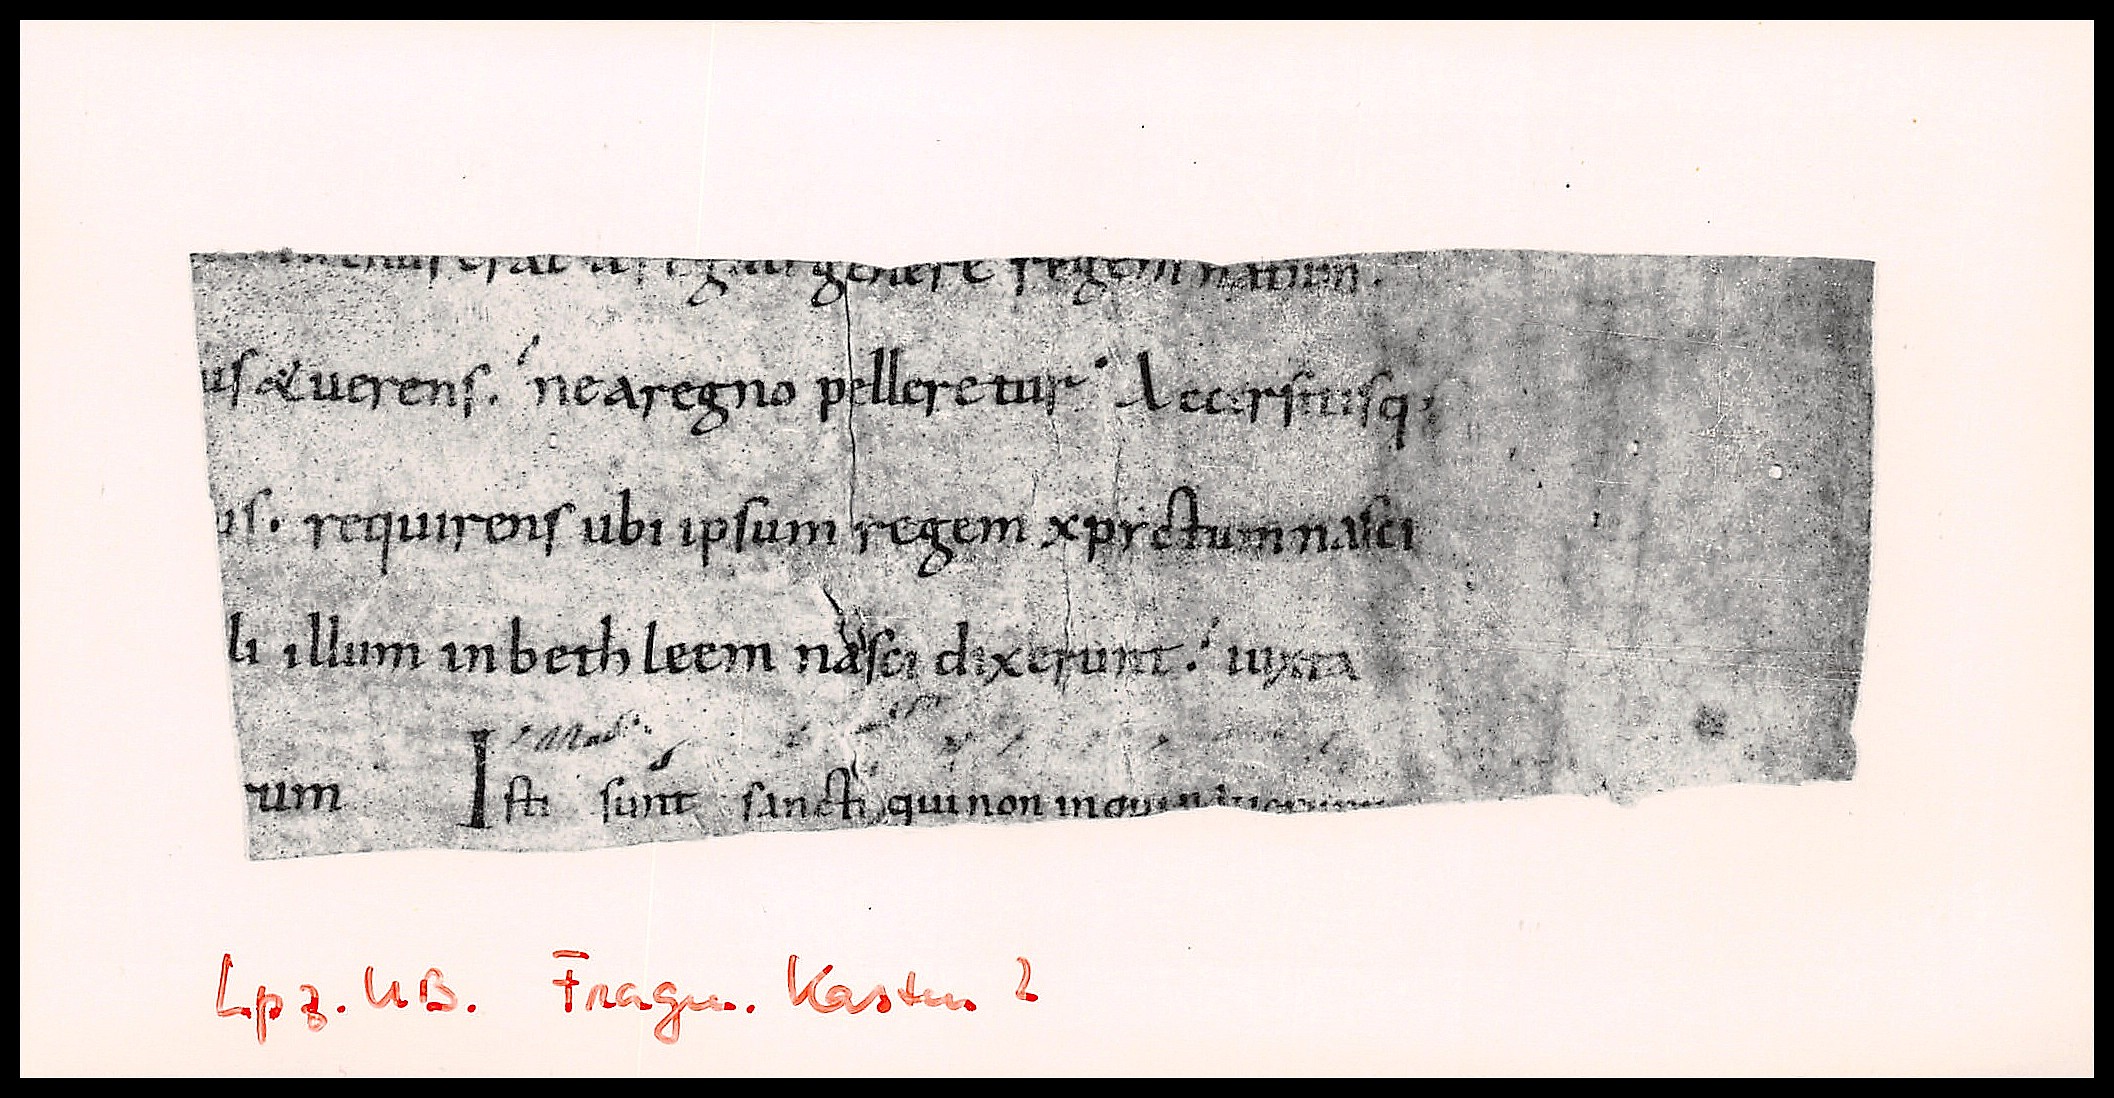 genere regem natum.
us & uerens. ne a regno pelleretur. Accersitisq;
us. requirens ubi ipsum regem xpictum nasci
li illum in bethleem nasci dixerunt. iuxta
rum Isti sunt sancti qui non inquinauerunt
Lpz. UB. Fragm. Kasten 2